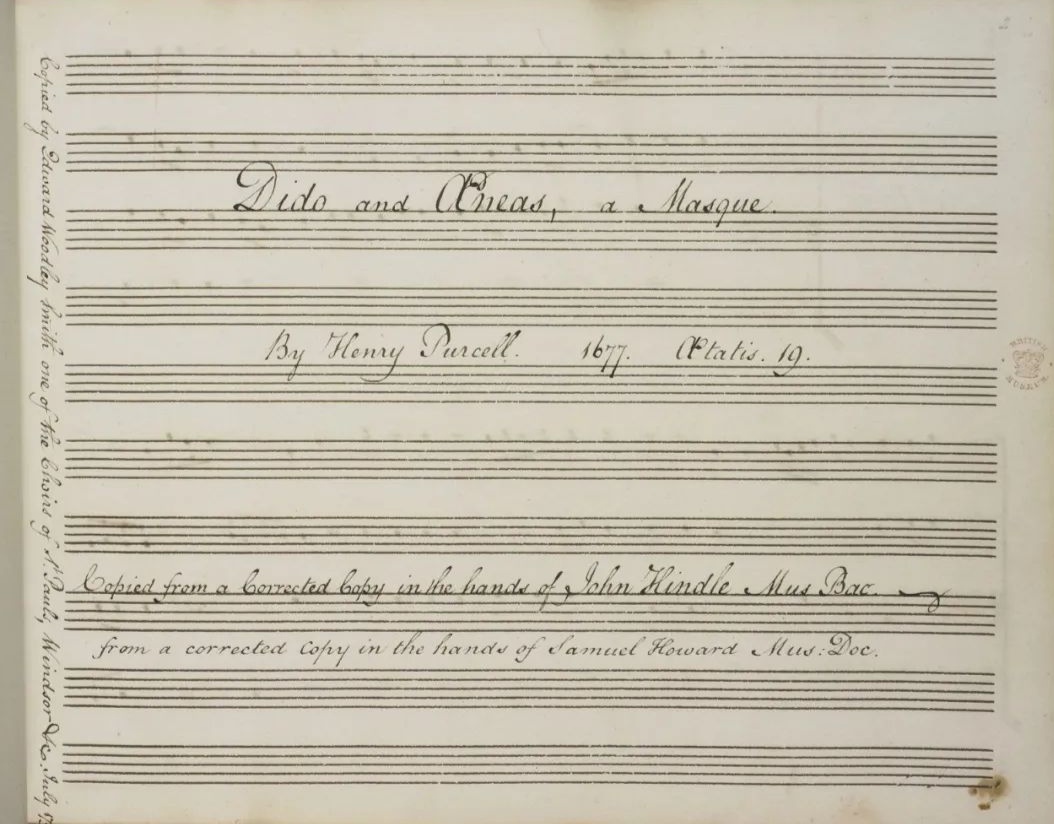 2
Dido and Æneas, a Masque.
By Henry Purcell. 1677. Ætatis. 19.
BRITISH MUSEUM
Copied from a Corrected Copy in the hands of John Hindle Mus Bac.
from a corrected Copy in the hands of Samuel Howard Mus: Doc.
Copied by Edward Woodley Smith one of the Choirs of St. Pauls, Windsor &c. July